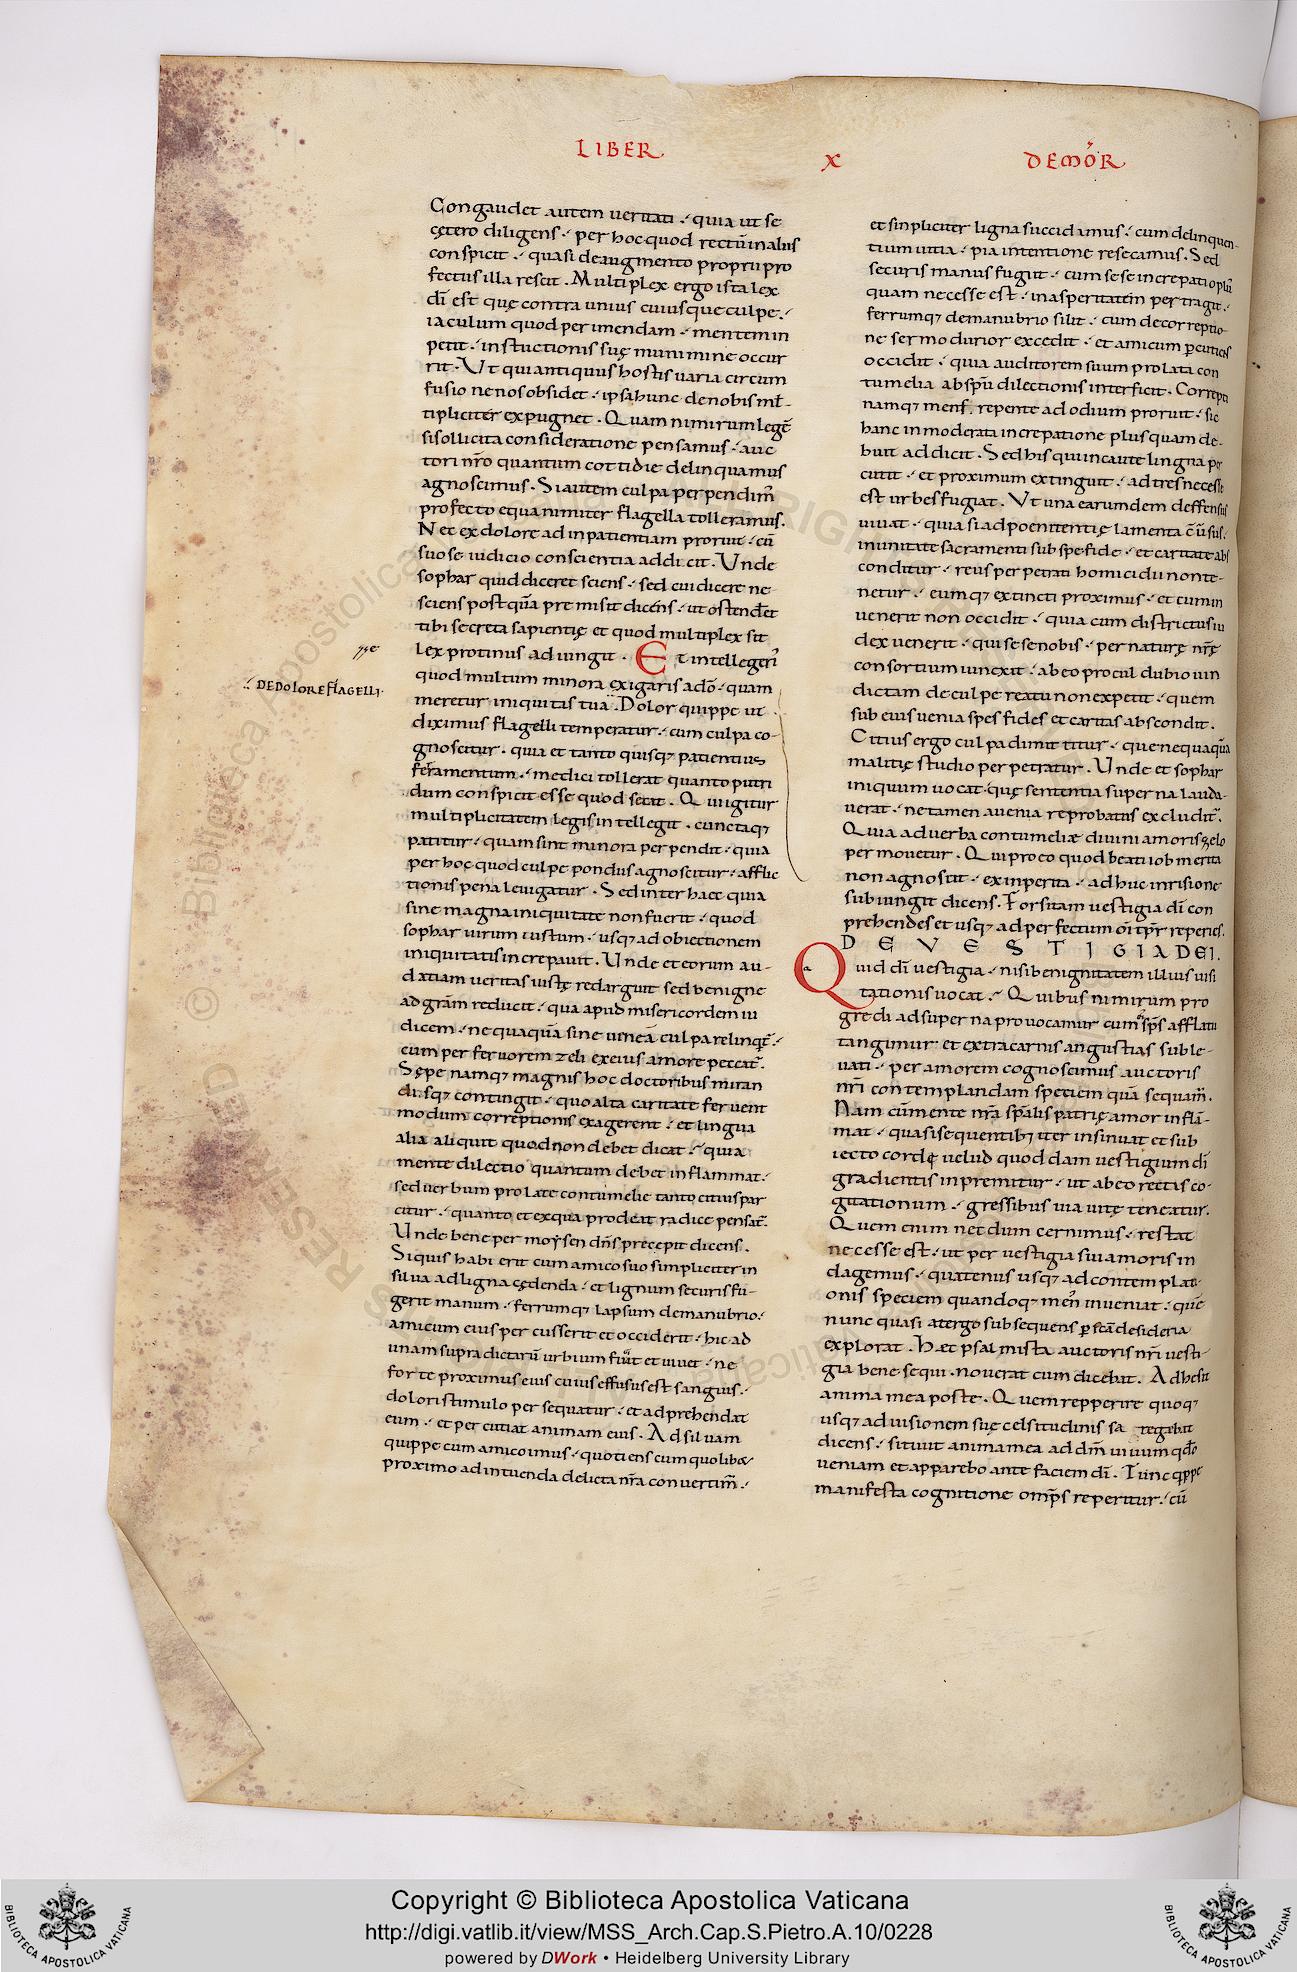 LIBER X DEMOR̃
Congaudet autem ueritati · quia ut se
cętero diligens · per hoc quod rectū in aliis
conspicit · quasi de augmento proprii pro
fectus illa rescit . Multiplex ergo ista lex
dī est quę contra unius cuiusque culpe ·
iaculum quod perimendam · mentem in
petit · instuctionis suę munimine occur
rit · Vt qui antiquus hostis uaria circum
fusio ne nos obsidet · ipsa hunc de nobis ml̄
tipliciter expugnet . Quam nimirum legē
si sollicita consideratione pensamus · auc
tori nr̄o quantum cottidie delinquamus
agnoscimus . Si autem culpa perpendim̄
profecto equanimiter flagella tolleramus.
Nec ex dolore ad inpatientiam proruit · cū
suo se iudicio conscientia addicit . Unde
sophar quid diceret sciens · sed cui dicere ne
sciens postquā premisit dicens · ut ostenderet
tibi secreta sapientię et quod multiplex sit
lex protinus adiungit . Et intellegeri
quod multum minora exigaris adō · quam
meretur iniquitas tua . Dolor quippe ut
DE DOLORE FLAGELLI·
diximus flagelli temperatur · cum culpa co-
gnoscitur · quia et tanto quisq; patientius
feramentum · medici tollerat quanto putri
dum conspicit esse quod secat . Qui igitur
multiplicitatem legis intellegit . cunctaq;
patitur · quam sint minora perpendit · quia
per hoc quod culpe pondus agnoscitur · afflic
tionis pena leuigatur . Sed inter haec quia
sine magna iniquitate non fuerit · quod
sophar uirum iustum · usq; ad obiectionem
iniquitatis increpauit . Unde et eorum au-
datiam ueritas iustę redarguit sed benigne
ad grām reducit · quia apud misericordem iu
dicem · nequaquā sine ueneā culpa relinq̄t̄ ·
cum per feruorem zeli ex eius amore peccat̄.
Sępe namq; magnis hoc doctoribus miran
disq; contingit · quo alta caritate feruent
modum correptionis exagerent · et lingua
alia aliquit quod non debet dicat · quia
mente dilectio quantum debet inflammat ·
sed uerbum prolate contumelie tanto citius par
citur · quanto et ex qua prodeat radice pensat̄.
Unde bene per moysen dn̄s precepit dicens .
Siquis habierit cum amico suo simpliciter in
silua ad ligna cędenda · et lignum securis fu-
gerit manum · ferrumq; lapsum de manubrio ·
amicum eius percusserit et occiderit · hic ad
unam supradictarū urbium fugit et uiuet · ne
forte proximus eius cuius effusus est sanguis ·
dolori stimulo persequatur · et adprehendat
eum · et percutiat animam eius . Ad siluam
quippe cum amico imus · quotiens cum quolibet
proximo ad intuenda delicta nr̄a conuertim̄ ·
et sinpliciter ligna succidamus · cum delinquen-
tium uitia · pia intentione resecamus . Sed
securis manus fugit · cum sese increpatio plus
quam necesse est · in asperitatem pertragit ·
ferrumq; de manubrio silit · cum de correptio
ne sermo durior excedit · et amicum percutiens
occidit · quia auditorem suum prolata con
tumelia ab spū dilectionis interficit . Correpti
namq; mens repente ad odium proruit · si
hanc inmoderata increpatione plus quam de-
buit addicit . Sed his qui incaute ligna per
cutit · et proximum extinguit · ad tres necesse
est urbes fugiat . Vt una earumdem deffensus
uiuat · quia si ad poenitentię lamenta c̄ūsus ·
in unitate sacramenti sub spe fide · et caritate abs
conditur · reus perpetrati homicidii non te-
netur · eumq; extincti proximus · et cum in
uenerit non occidit · quia cum districtus iu
dex uenerit · qui sese nobis · per naturę nr̄ę
consortium iunexit · ab eo procul dubio uin
dictam de culpe reatu non expetit · quem
sub eius uenia spes fides et caritas abscondit .
Citius ergo culpa dimittitur · que nequaquā
malitię studio perpetratur . Unde et sophar
iniquum uocat quę sententia superna lauda-
uerat · ne tamen a uenia reprobatus excludit̄.
Quia ad uerba contumeliæ diuini amoris zelo
permouetur . Qui pro eo quod beati iob merita
non agnoscit · ex inperita · adhuc inrisione
subiungit dicens . Forsitam uestigia dī con
prehendes et usq; ad perfectum om̄ip̄r reperies.
DE VESTIGIA DEI.
Quid dī uestigia · nisi benignitatem illius uisi
tationis uocat · Quibus nimirum pro
gredi ad superna prouocamur cum sp̄s afflatu
tangimur et extra carnis angustias suble-
uati · per amorem cognoscimus auctoris
nr̄i contemplandam speciem quā sequam̄.
Nam cū mente nr̄a sp̄alis patrię amor inflā-
mat · quasi sequentib; iter insinuat et sub
iecto cordę uelud quoddam uestigium dī
gradientis inpremitur · ut ab eo rectis co-
gitationum · gressibus uia uitę teneatur.
Quem enim necdum cernimus · restat
necesse est · ut per uestigia sui amoris in
dagemus · quatenus usq; ad contemplati
onis speciem quandoq; mens inueniat · que
nunc quasi a tergo subsequens per scā desideria
explorat . Haec psalmista auctoris nr̄i uesti-
gia bene sequi · nouerat cum dicebat . Adhesit
anima mea poste . Quem repperire quoq;
usq; ad uisionem suę celsitudinis sa regebat
dicens · sitiuit anima mea ad dm̄ uiuum qdo
ueniam et apparebo ante faciem dī . Tunc q̄ppe
manifesta cognitione omp̄s reperitur · cū
Copyright © Biblioteca Apostolica Vaticana
http://digi.vatlib.it/view/MSS_Arch.Cap.S.Pietro.A.10/0228
powered by DWork • Heidelberg University Library
BIBLIOTECA APOSTOLICA VATICANA
BIBLIOTECA APOSTOLICA VATICANA